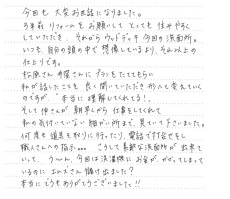 今回も大変お世話になりました。
5年前リフォームをお願いしてとても住みやすく
していただき、それからウッドデッキ今回の洗面所。
いつも、自分の頭の中で想像しているより、それ以上の
仕上りです。
松原さんの奥さんにプランをたててもらい
私が話したことも良く聞いていただき形へと変えていく
のですが"本当に理解してくれてる!"
そして仲さんが朝早くから仕事をしてくれて
私の気付いていない細かい所まで、見ていて下さいました。
何度も道具を取りに行ったり、電話で打合せをし
職人さんへの指示・・・こうして素敵な洗面所が出来て
いて、う〜ん、今回は洗濯機にお金がかかってしまって
いるのに エルスさん儲け出ました?
本当にどうもありがとうございました!!